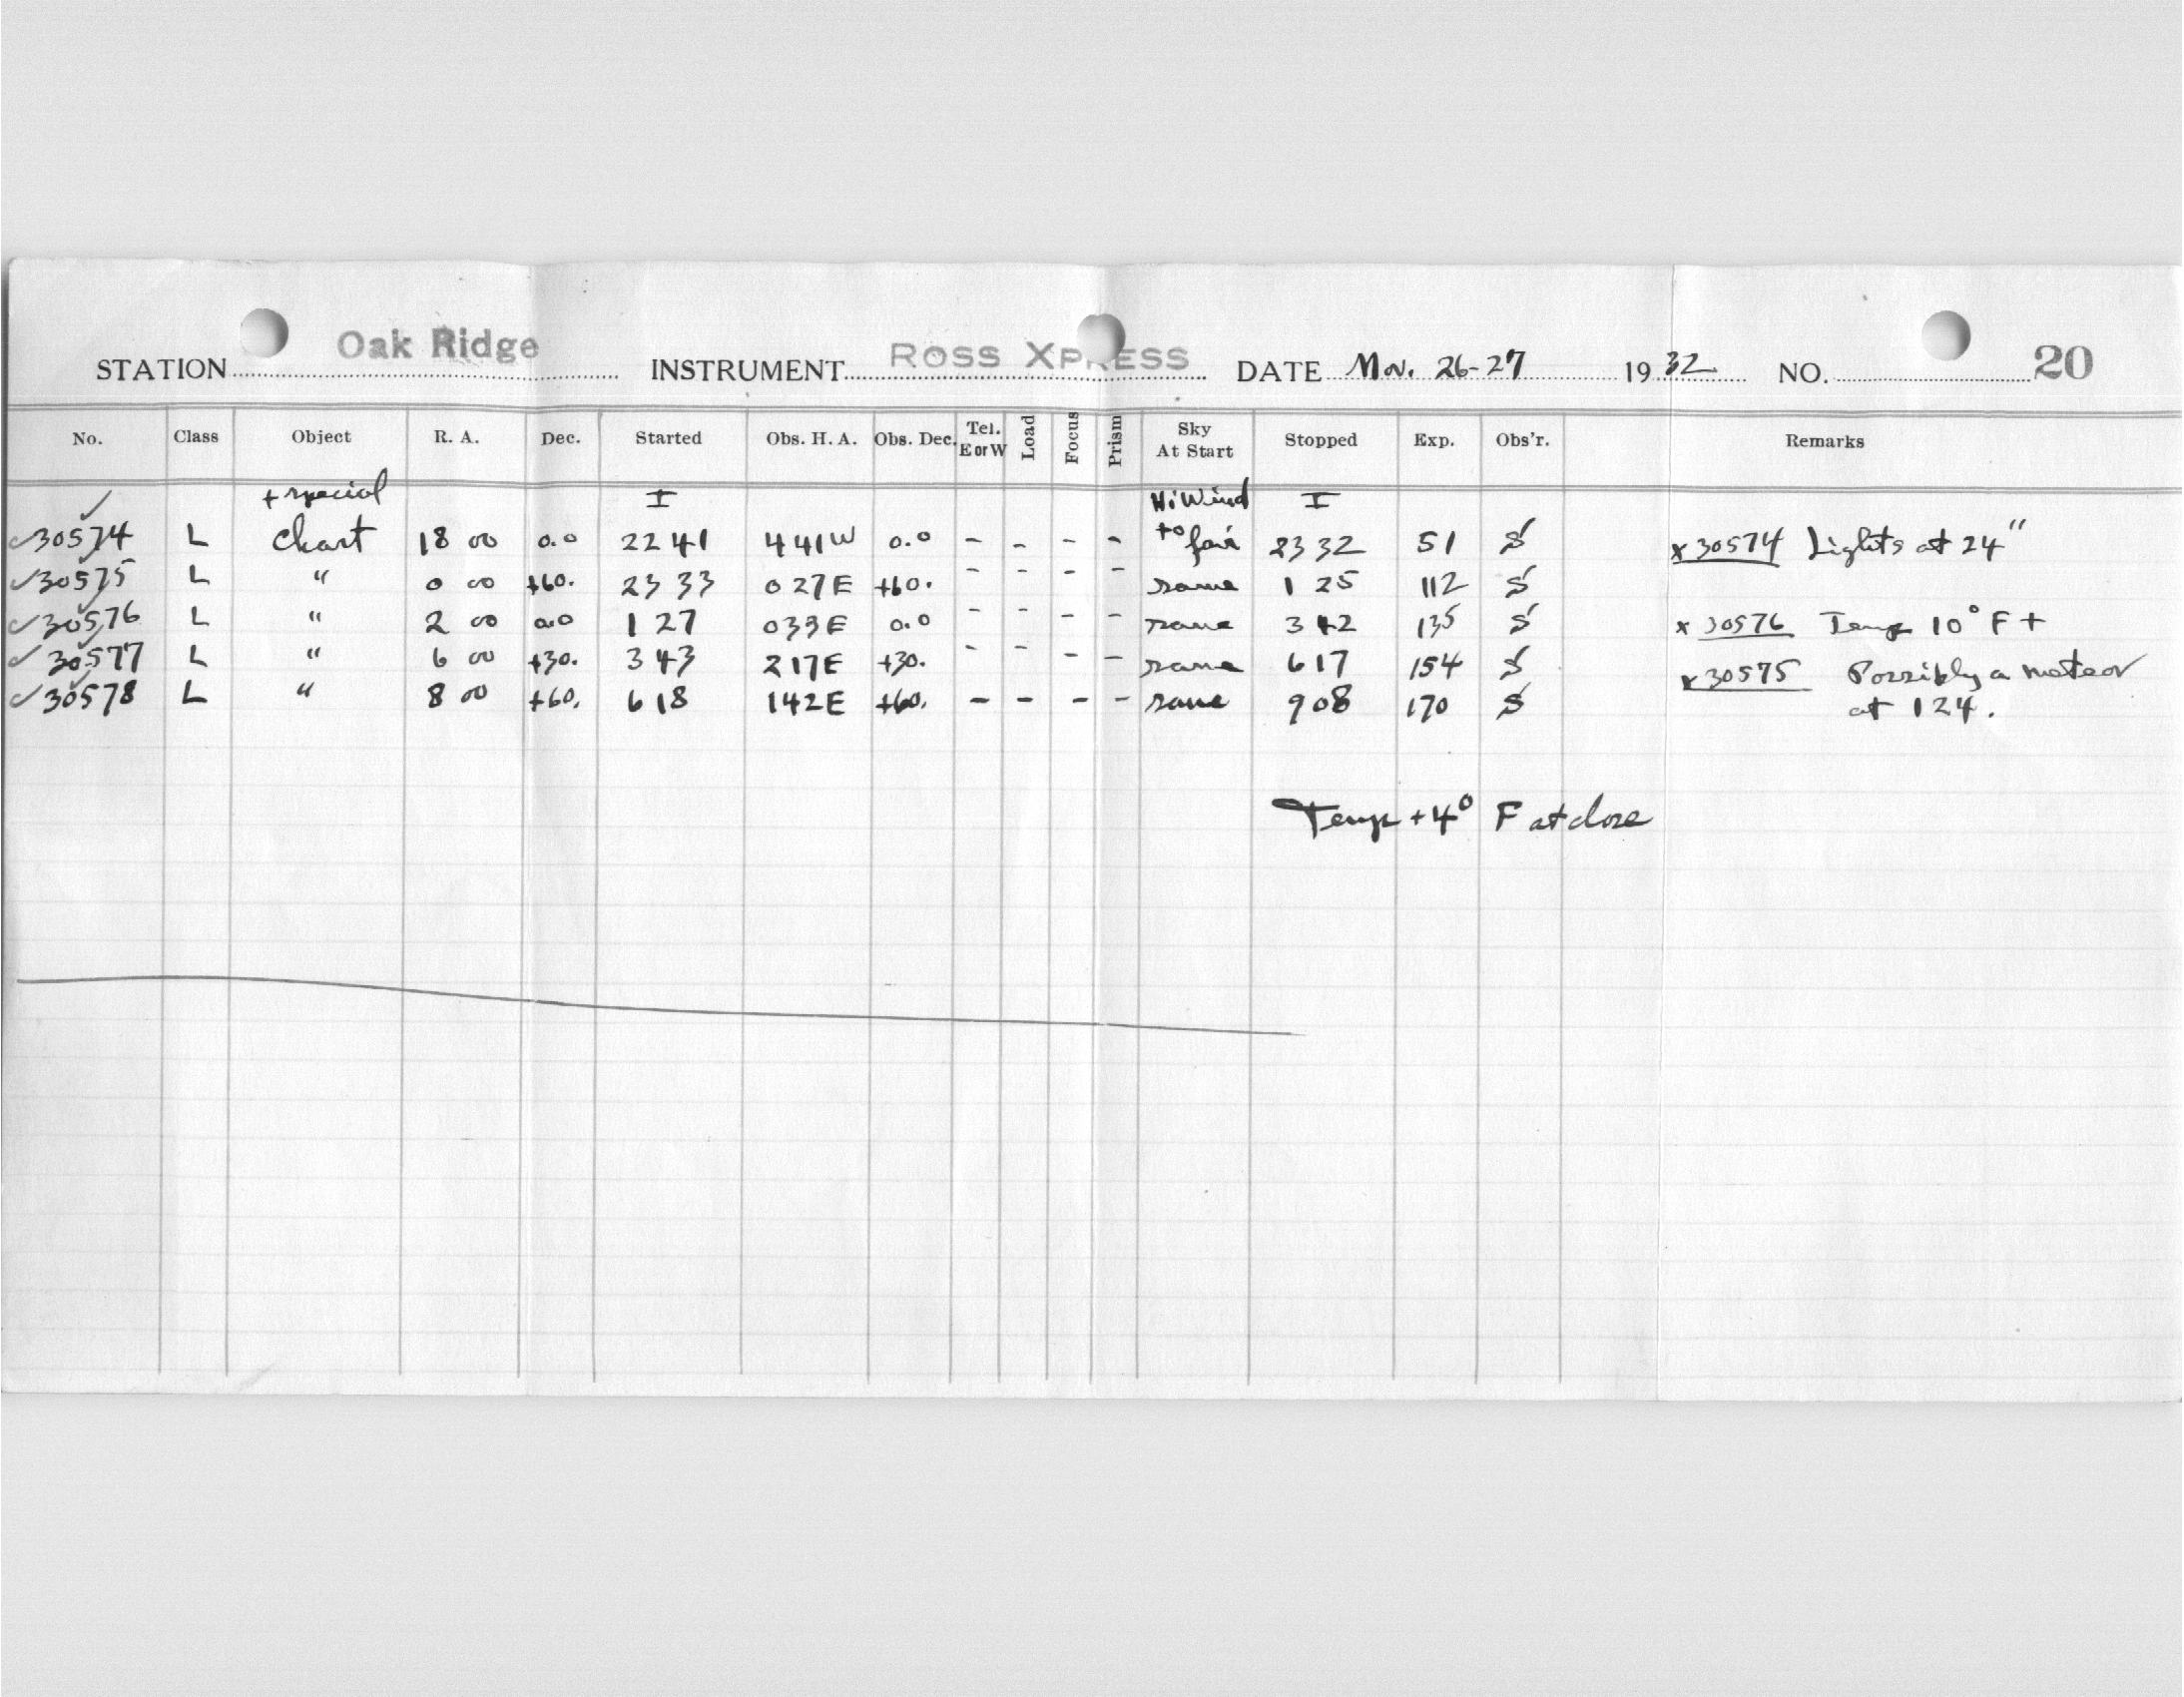 STATION Oak Ridge INSTRUMENT ROSS XPRESS DATE Nov. 26-27 1932 NO. 20
No. Class Object R. A. Dec. Started Obs. H. A. Obs. Dec. Tel. E or W Load Focus Prism Sky At Start Stopped Exp. Obs'r. Remarks
+ special I Hi Wind I
30574 L Chart 18 00 0.0 22 41 4 41 W 0.0 - - - - to fair 23 32 51 S x 30574 Lights at 24"
30575 L " 0 00 +60. 23 33 0 27 E +60. - - - - same 1 25 112 S
30576 L " 2 00 0.0 1 27 0 33 E 0.0 - - - - same 3 42 135 S x 30576 Temp 10° F +
30577 L " 6 00 +30. 3 43 2 17 E +30. - - - - same 6 17 154 S x 30575 Possibly a meteor
30578 L " 8 00 +60. 6 18 1 42 E +60. - - - - same 9 08 170 S at 1 24.
Temp +4° F at close